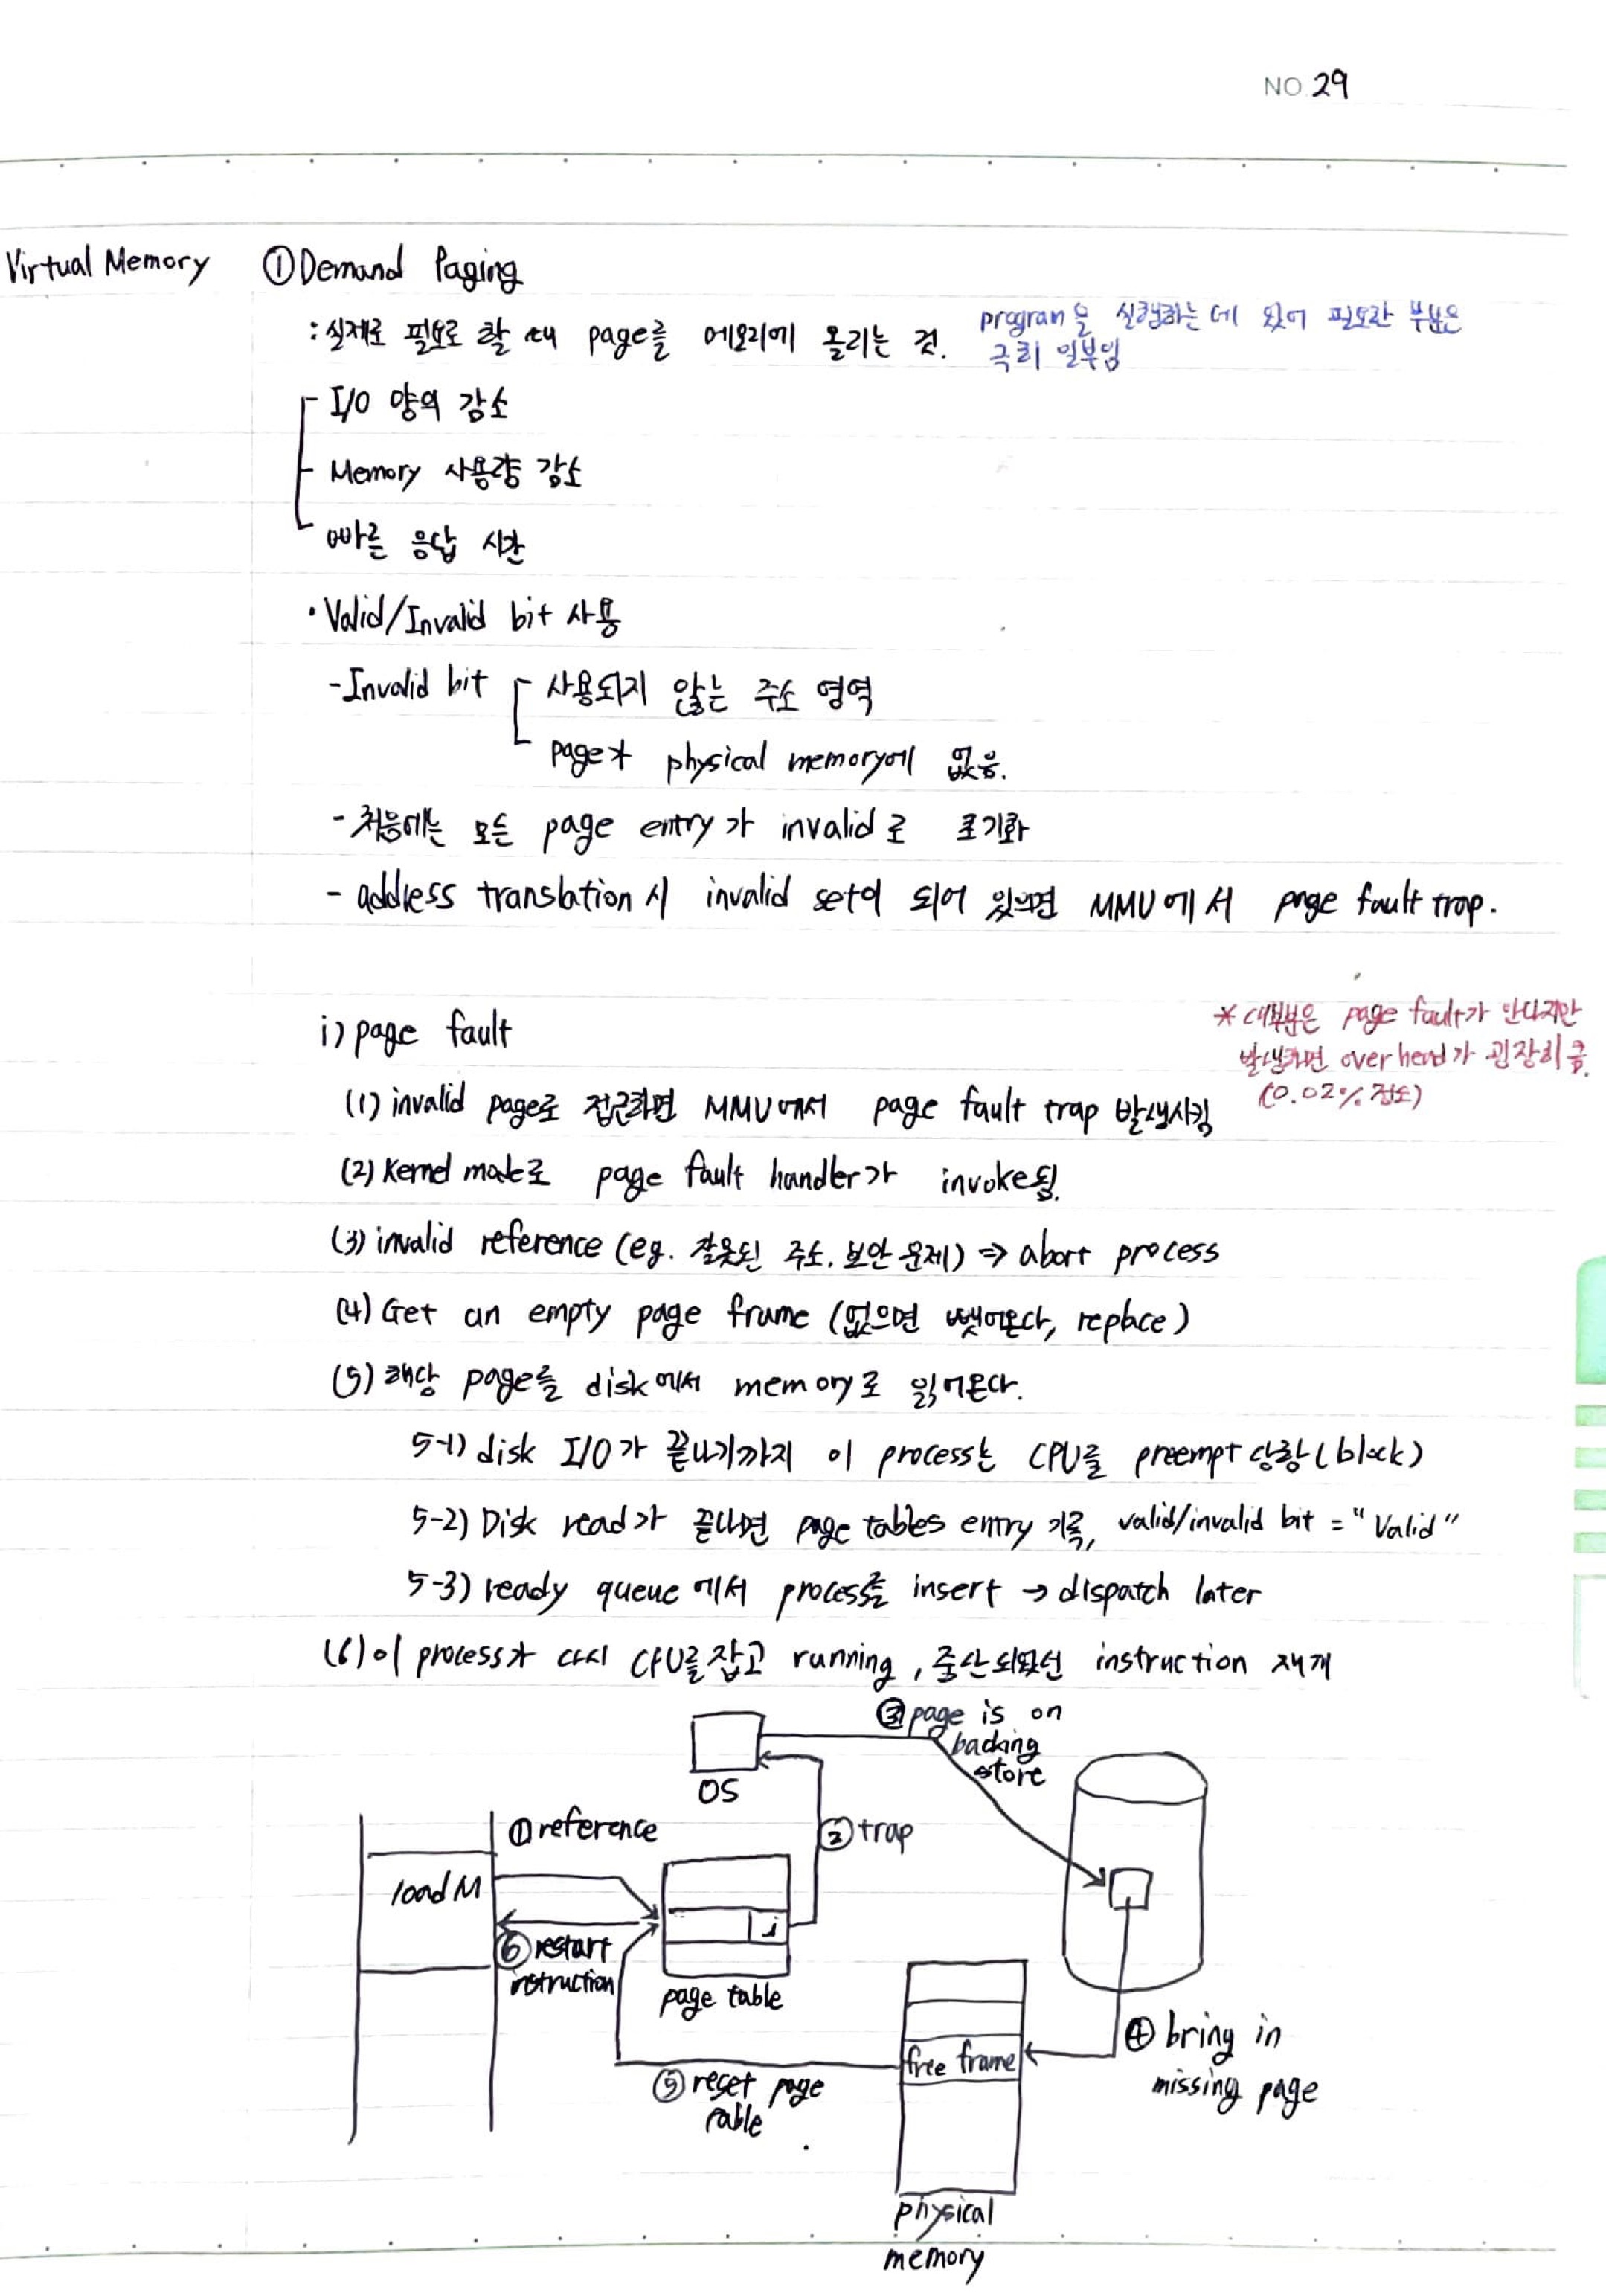 NO. 29
Virtual Memory ①Demand Paging
: 실제로 필요로 할 때 page를 메모리에 올리는 것. program을 실행하는 데 있어 필요한 부분은
극히 일부임
I/O 양의 감소
Memory 사용량 감소
빠른 응답 시간
• Valid/Invalid bit 사용
- Invalid bit 사용되지 않는 주소 영역
page가 physical memory에 없음.
- 처음에는 모든 page entry가 invalid로 초기화
- address translation시 invalid set이 되어 있으면 MMU에서 page fault trap.
i) page fault
* 대부분은 page fault가 안나지만
발생하면 overhead가 굉장히 큼.
(0.02% 정도)
(1) invalid page로 접근하면 MMU에서 page fault trap 발생시킴
(2) Kernel mode로 page fault handler가 invoke됨.
(3) invalid reference (eg. 잘못된 주소, 보안 문제) ⇒ abort process
(4) Get an empty page frame (없으면 뺏어온다, replace)
(5) 해당 page를 disk에서 memory로 읽어온다.
5-1) disk I/O가 끝나기까지 이 process는 CPU를 preempt 당함 (block)
5-2) Disk read가 끝나면 page tables entry 기록, valid/invalid bit = "Valid"
5-3) ready queue에서 process를 insert → dispatch later
(6) 이 process가 다시 CPU를 잡고 running, 중단되었던 instruction 재개
③ page is on
backing
store
OS
① reference
② trap
load M
i
⑥ restart
instruction
page table
free frame
④ bring in
missing page
⑤ reset page
table
physical
memory